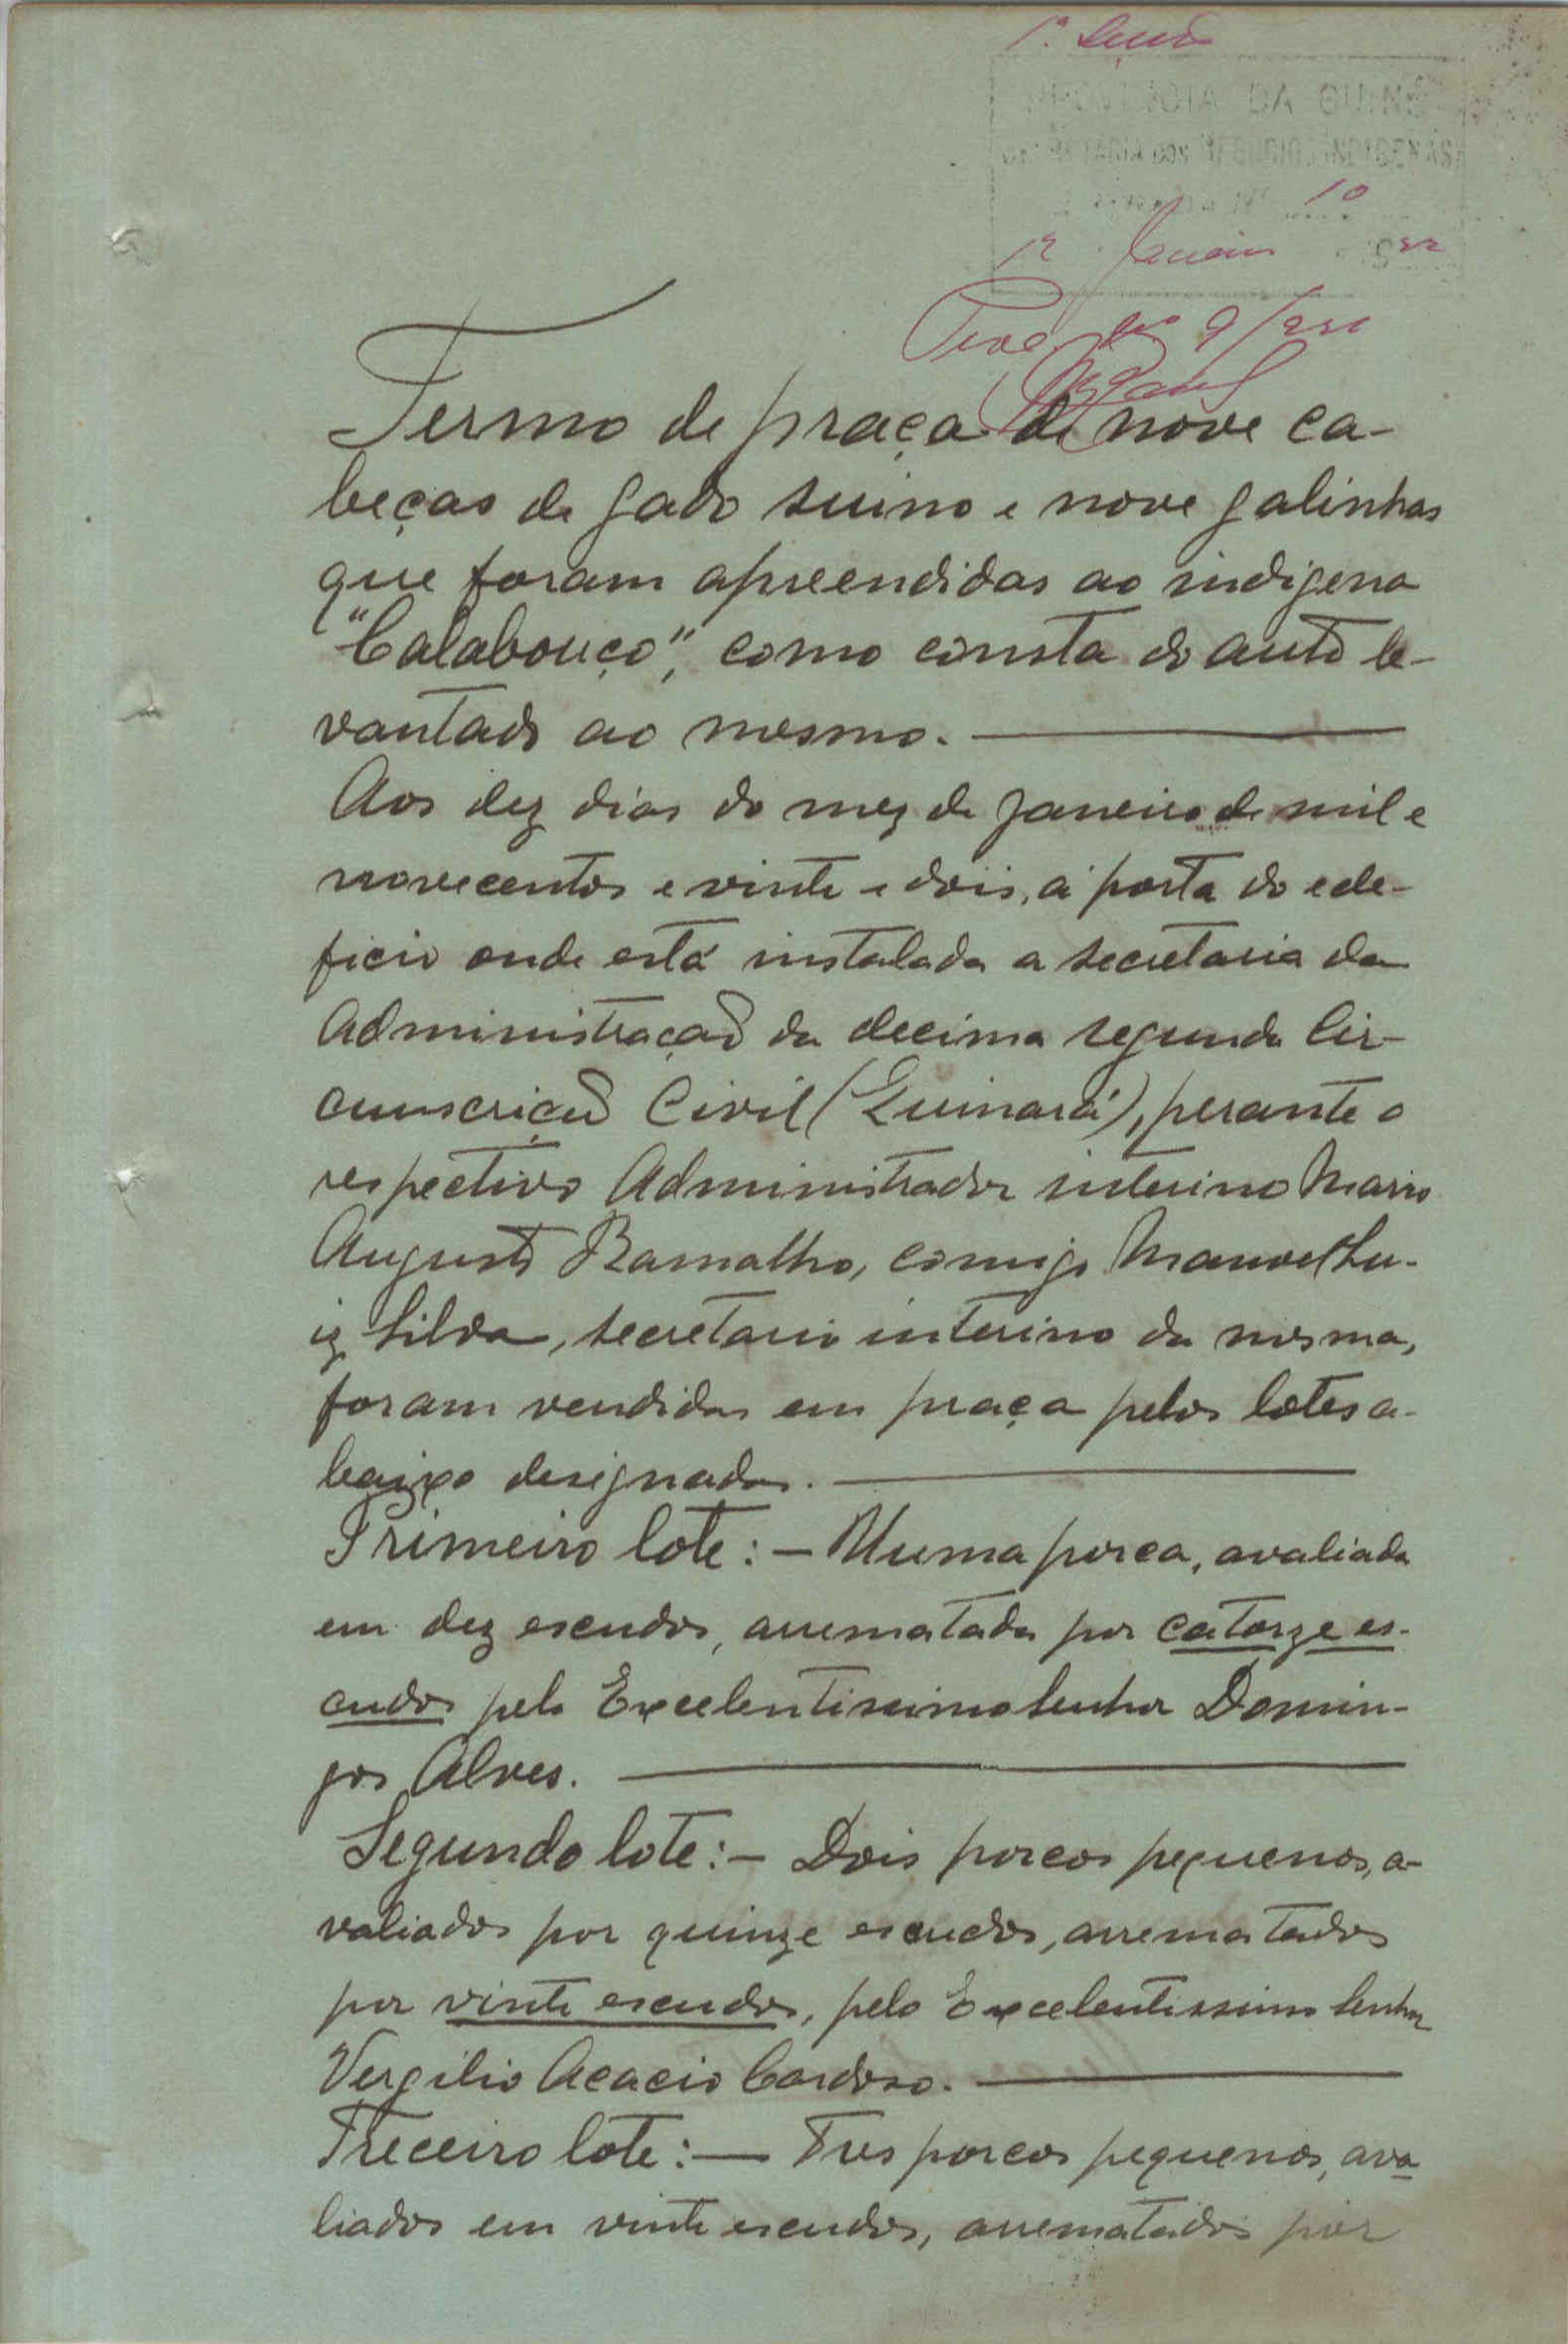 PROVINCIA DA GUINÉ
SECRETARIA DOS NEGOCIOS INDIGENAS
10
12 Janeiro 22
Termo de praça de nove ca-
beças de gado suino e nove galinhas
que foram apreendidas ao indigena
"Calabouço", como consta do auto le-
vantado ao mesmo.
Aos dez dias do mez de Janeiro de mil e
novecentos e vinte e dois, á porta do ede-
ficio onde está instalada a secretaria da
Administração da decima segunda Cir-
cunscrição Civil (Quinará), perante o
respectivo Administrador interino Mario
Augusto Ramalho, comigo Manoel Lu-
iz Silva, secretario interino da mesma,
foram vendidas em praça pelos lotes a-
baixo designados.
Primeiro lote: — Numa porca, avaliada
em dez escudos, arrematada por catorze es-
cudos pelo Excelentissimo Senhor Domin-
gos Alves.
Segundo lote: — Dois porcos pequenos, a-
valiados por quinze escudos, arrematados
por vinte escudos, pelo Excelentissimo Senhor
Vergilio Acacio Cardoso.
Treceiro lote: — Tres porcos pequenos, ava
liados em vinte escudos, arrematados por